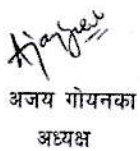 अजय गोयनका
अध्यक्ष